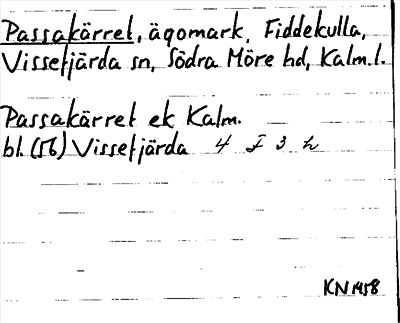 Passakärret, ägomark, Fiddekulla,
Vissefjärda sn, Södra Möre hd, Kalm.l.
Passakärret ek Kalm.
bl. (56) Vissefjärda 4 I 3 h
KN 1958